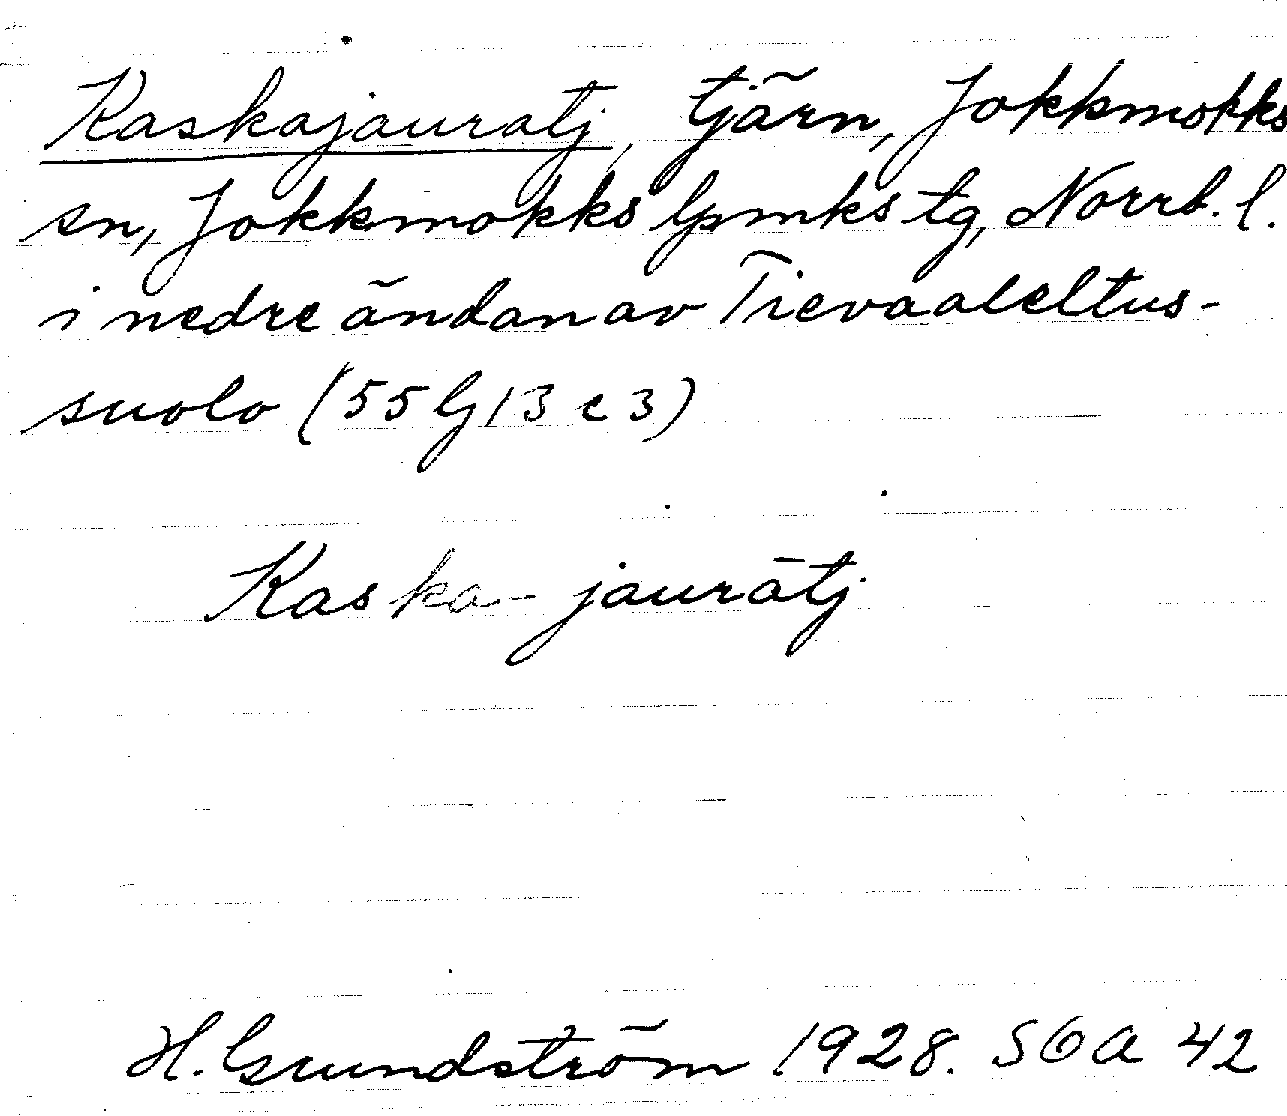 Kaskajauratj, tjärn, Jokkmokks
sn, Jokkmokks lpmks tg, Norrb. l.
i nedre ändan av Tievaaleltus-
suolo (55 G 13 c 3)
Kaska-jaurātj
H. Grundström 1928. SOA 42